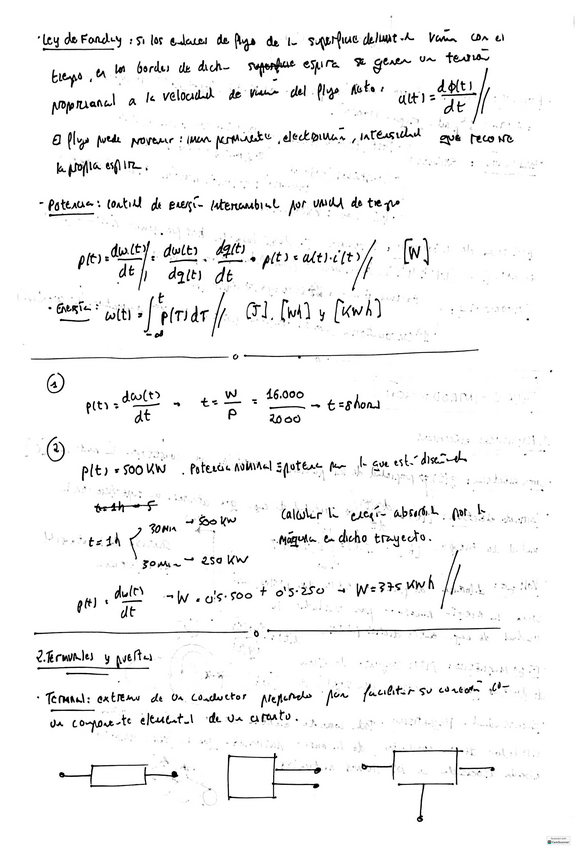 · Ley de Faraday: si los enlaces de flujo de la superficie delimitada varían con el
tiempo, en los bordes de dicha superficie espira se genera un tensión
proporcional a la velocidad de variación del flujo neto. u(t) = dϕ(t)/dt //
El flujo puede provenir: imán permanente, electroimán, intensidad que recorre
la propia espira.
· Potencia: cantidad de energía intercambiada por unidad de tiempo
p(t) = dw(t)/dt = dw(t)/dq(t) · dq(t)/dt · p(t) = u(t)·i(t) // [W]
· Energía: w(t) = ∫_{-∞}^{t} p(T)dT // [J], [Wh] y [KWh]
①
p(t) = dw(t)/dt → t = W/P = 16.000/2000 → t = 8 horas
②
p(t) = 500 KW. Potencia nominal ≡ potencia para la que está diseñada
t = 1h 30 min → 500 KW
30 min → 250 KW
Calcular la energía absorbida por la
máquina en dicho trayecto.
p(t) = dw(t)/dt → W = 0'5·500 + 0'5·250 → W = 375 KWh //
2. Terminales y puertas
· Terminal: extremo de un conductor preparado para facilitar su conexión con
un componente elemental de un circuito.